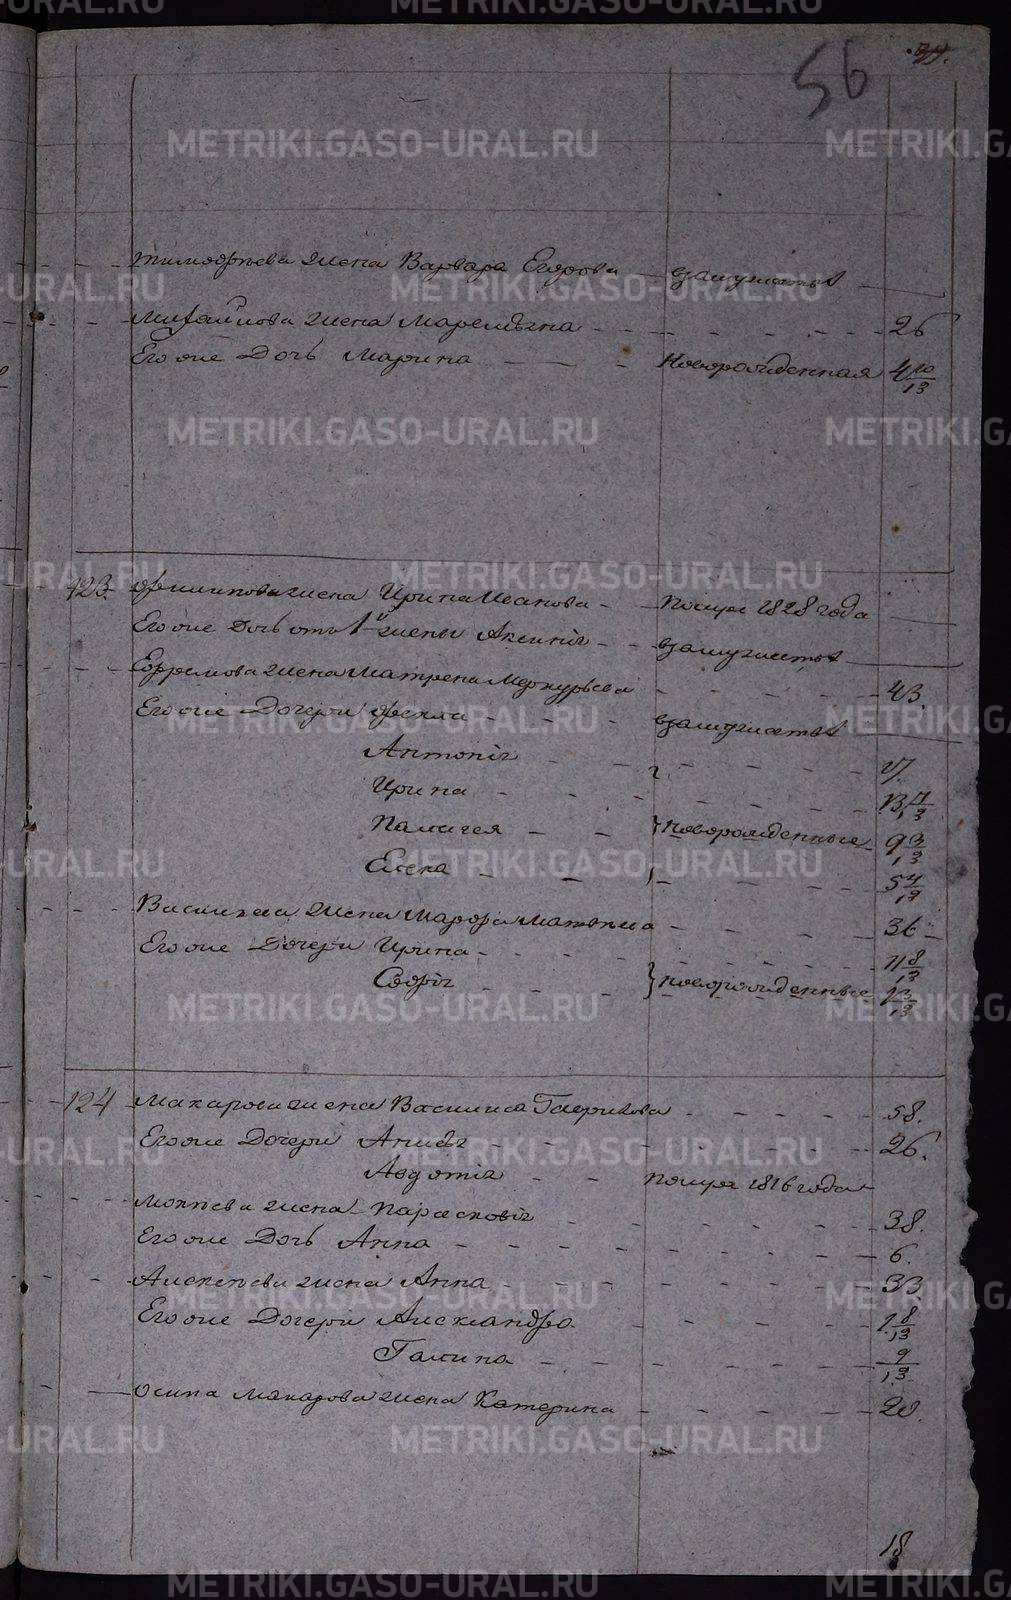 56
Тимофѣева жена Варвара Егорова взамужствѣ
Михаилова жена Маремьяна 26
Его же Дочь Марина Новорожденная 4 10/13
123 Филипова жена Ирина Иванова померла 1828 года
Его же Дочь отъ 1й жены Аксинія взамужствѣ
Ефремова жена Матрена Меркурьева 43.
Его же Дочери Фекла взамужствѣ
Антонія 17.
Ирина
Палагея новорожденные 9 3/13
Елена 5 4/13
Василья жена Марфа Матвѣева 36
Его же Дочери Ирина 11 8/13
Софія новорожденные
124 Макарова жена Василиса Гаврилова 58.
Его же Дочери Анисья 26.
Авдотія померла 1816 года
Мокѣева жена Парасковія 38.
Его же Дочь Анна 6.
Алексѣева жена Анна 33.
Его же Дочери Александра 1 8/13
Галина 9/13.
Осипа Макарова жена Катерина 20.
18
METRIKI.GASO-URAL.RU